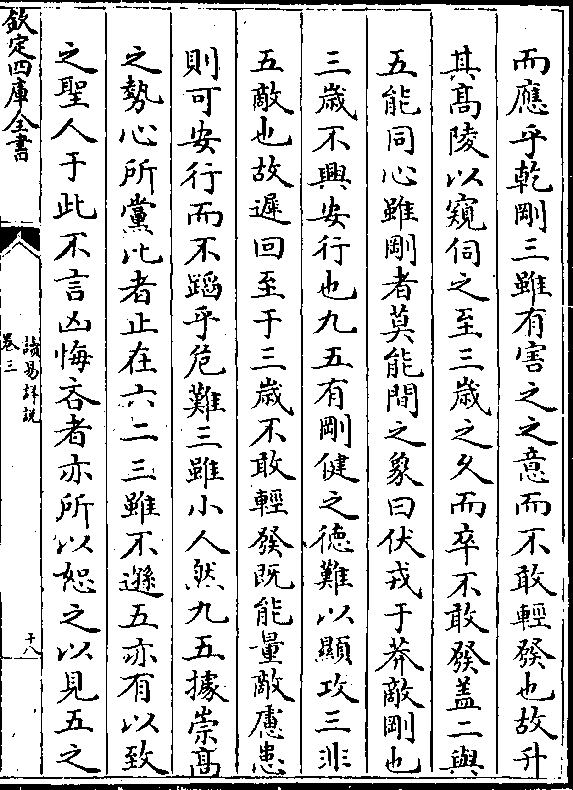 而應乎乾剛三雖有害之之意而不敢輕發也故升
其髙陵以窺伺之至三歲之久而卒不敢發盖二與
五能同心雖剛者莫能間之象曰伏戎于莽敵剛也
三歲不興安行也九五有剛健之德難以顯攻三非
五敵也故遲回至于三歲不敢輕發既能量敵慮患
則可安行而不蹈乎危難三雖小人然九五據崇髙
之勢心所黨比者止在六二三雖不遜五亦有以致
之聖人于此不言凶悔吝者亦所以恕之以見五之
欽定四庫全書
讀易詳說
卷三
十八